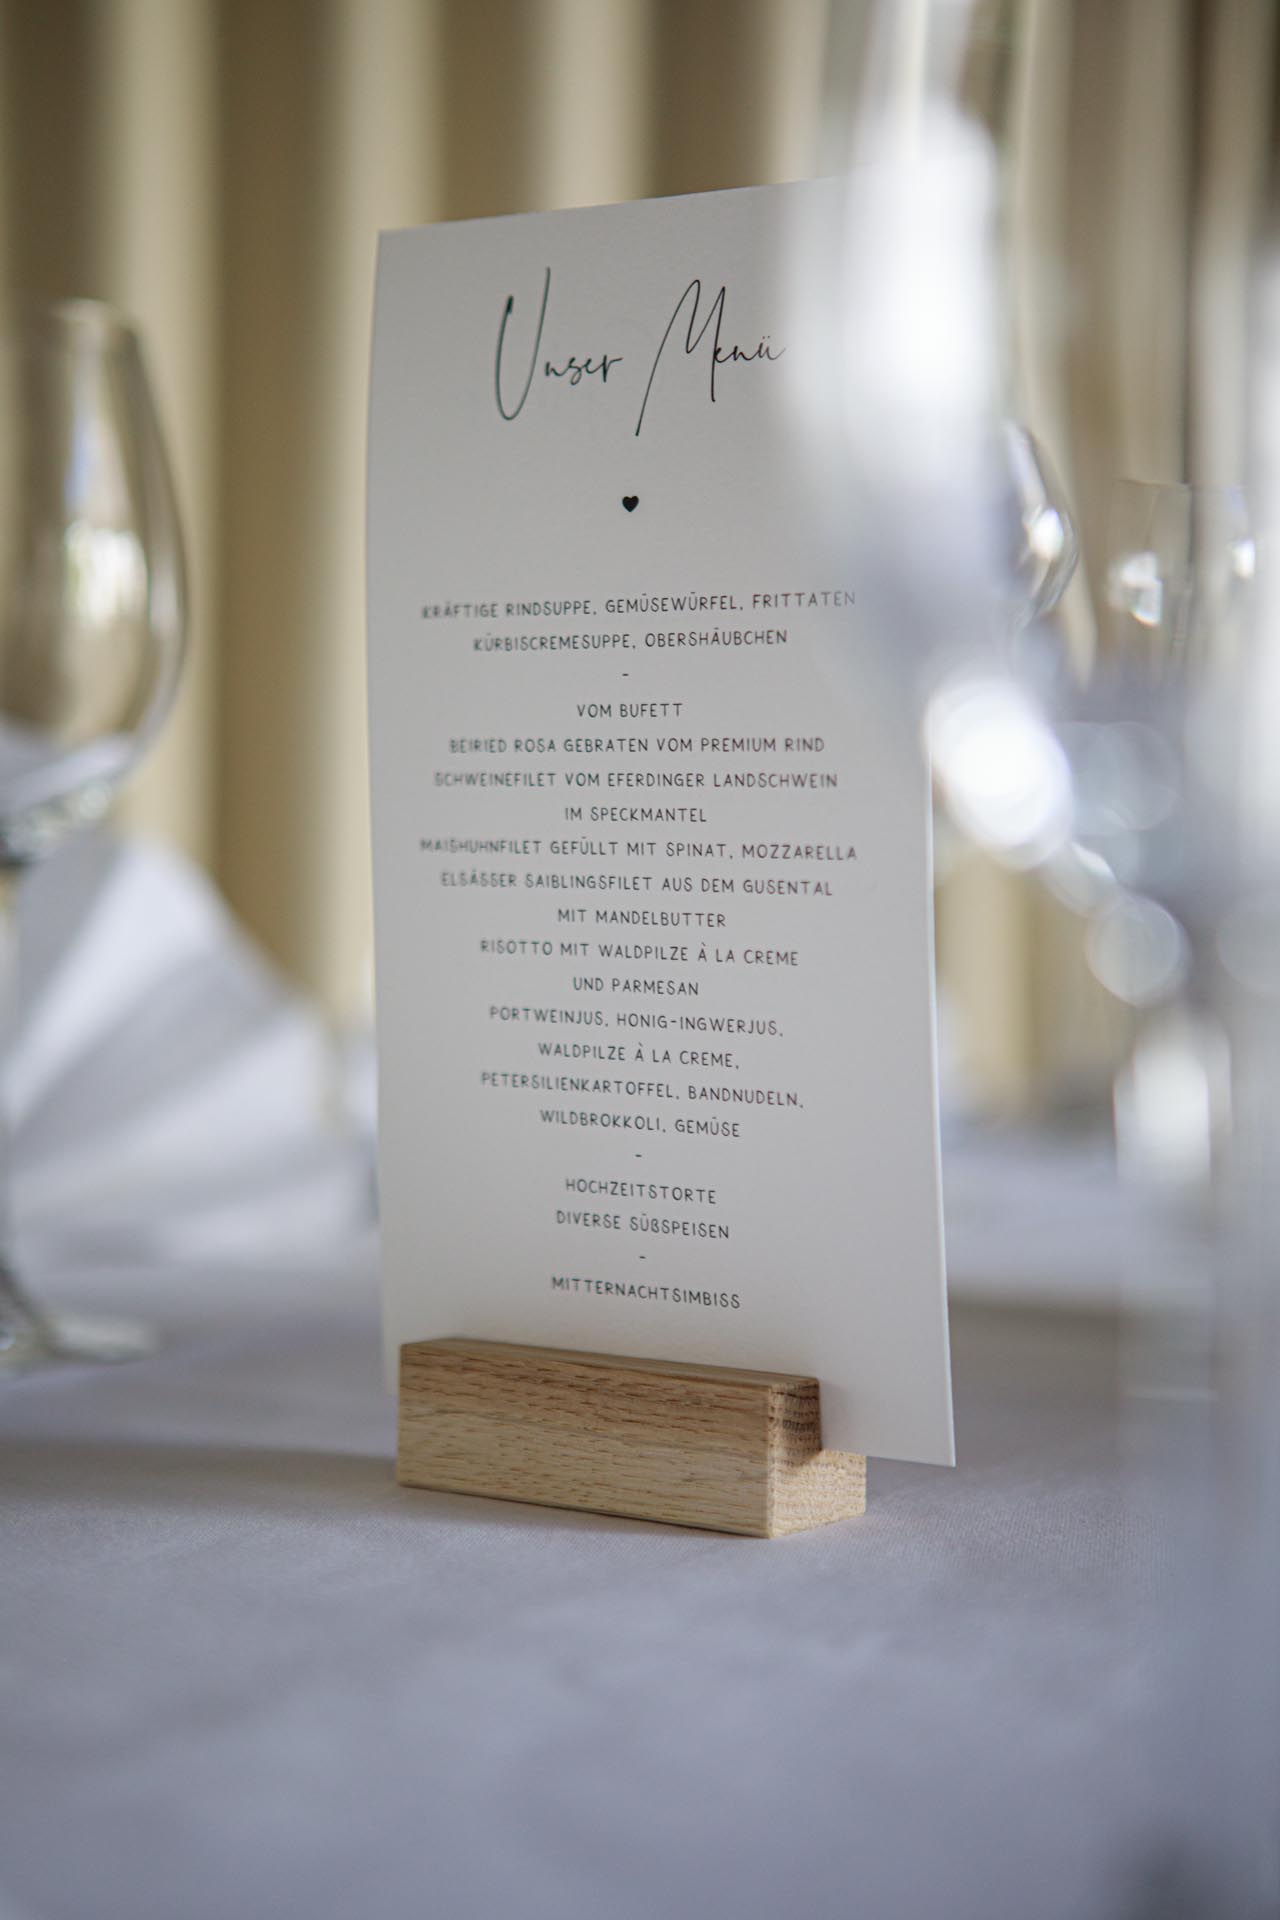 Unser Menü
KRÄFTIGE RINDSUPPE, GEMÜSEWÜRFEL, FRITTATEN
KÜRBISCREMESUPPE, OBERSHÄUBCHEN
-
VOM BUFETT
BEIRIED ROSA GEBRATEN VOM PREMIUM RIND
SCHWEINEFILET VOM EFERDINGER LANDSCHWEIN
IM SPECKMANTEL
MAISHUHNFILET GEFÜLLT MIT SPINAT, MOZZARELLA
ELSÄSSER SAIBLINGSFILET AUS DEM GUSENTAL
MIT MANDELBUTTER
RISOTTO MIT WALDPILZE À LA CREME
UND PARMESAN
PORTWEINJUS, HONIG-INGWERJUS,
WALDPILZE À LA CREME,
PETERSILIENKARTOFFEL, BANDNUDELN,
WILDBROKKOLI, GEMÜSE
-
HOCHZEITSTORTE
DIVERSE SÜßSPEISEN
-
MITTERNACHTSIMBISS